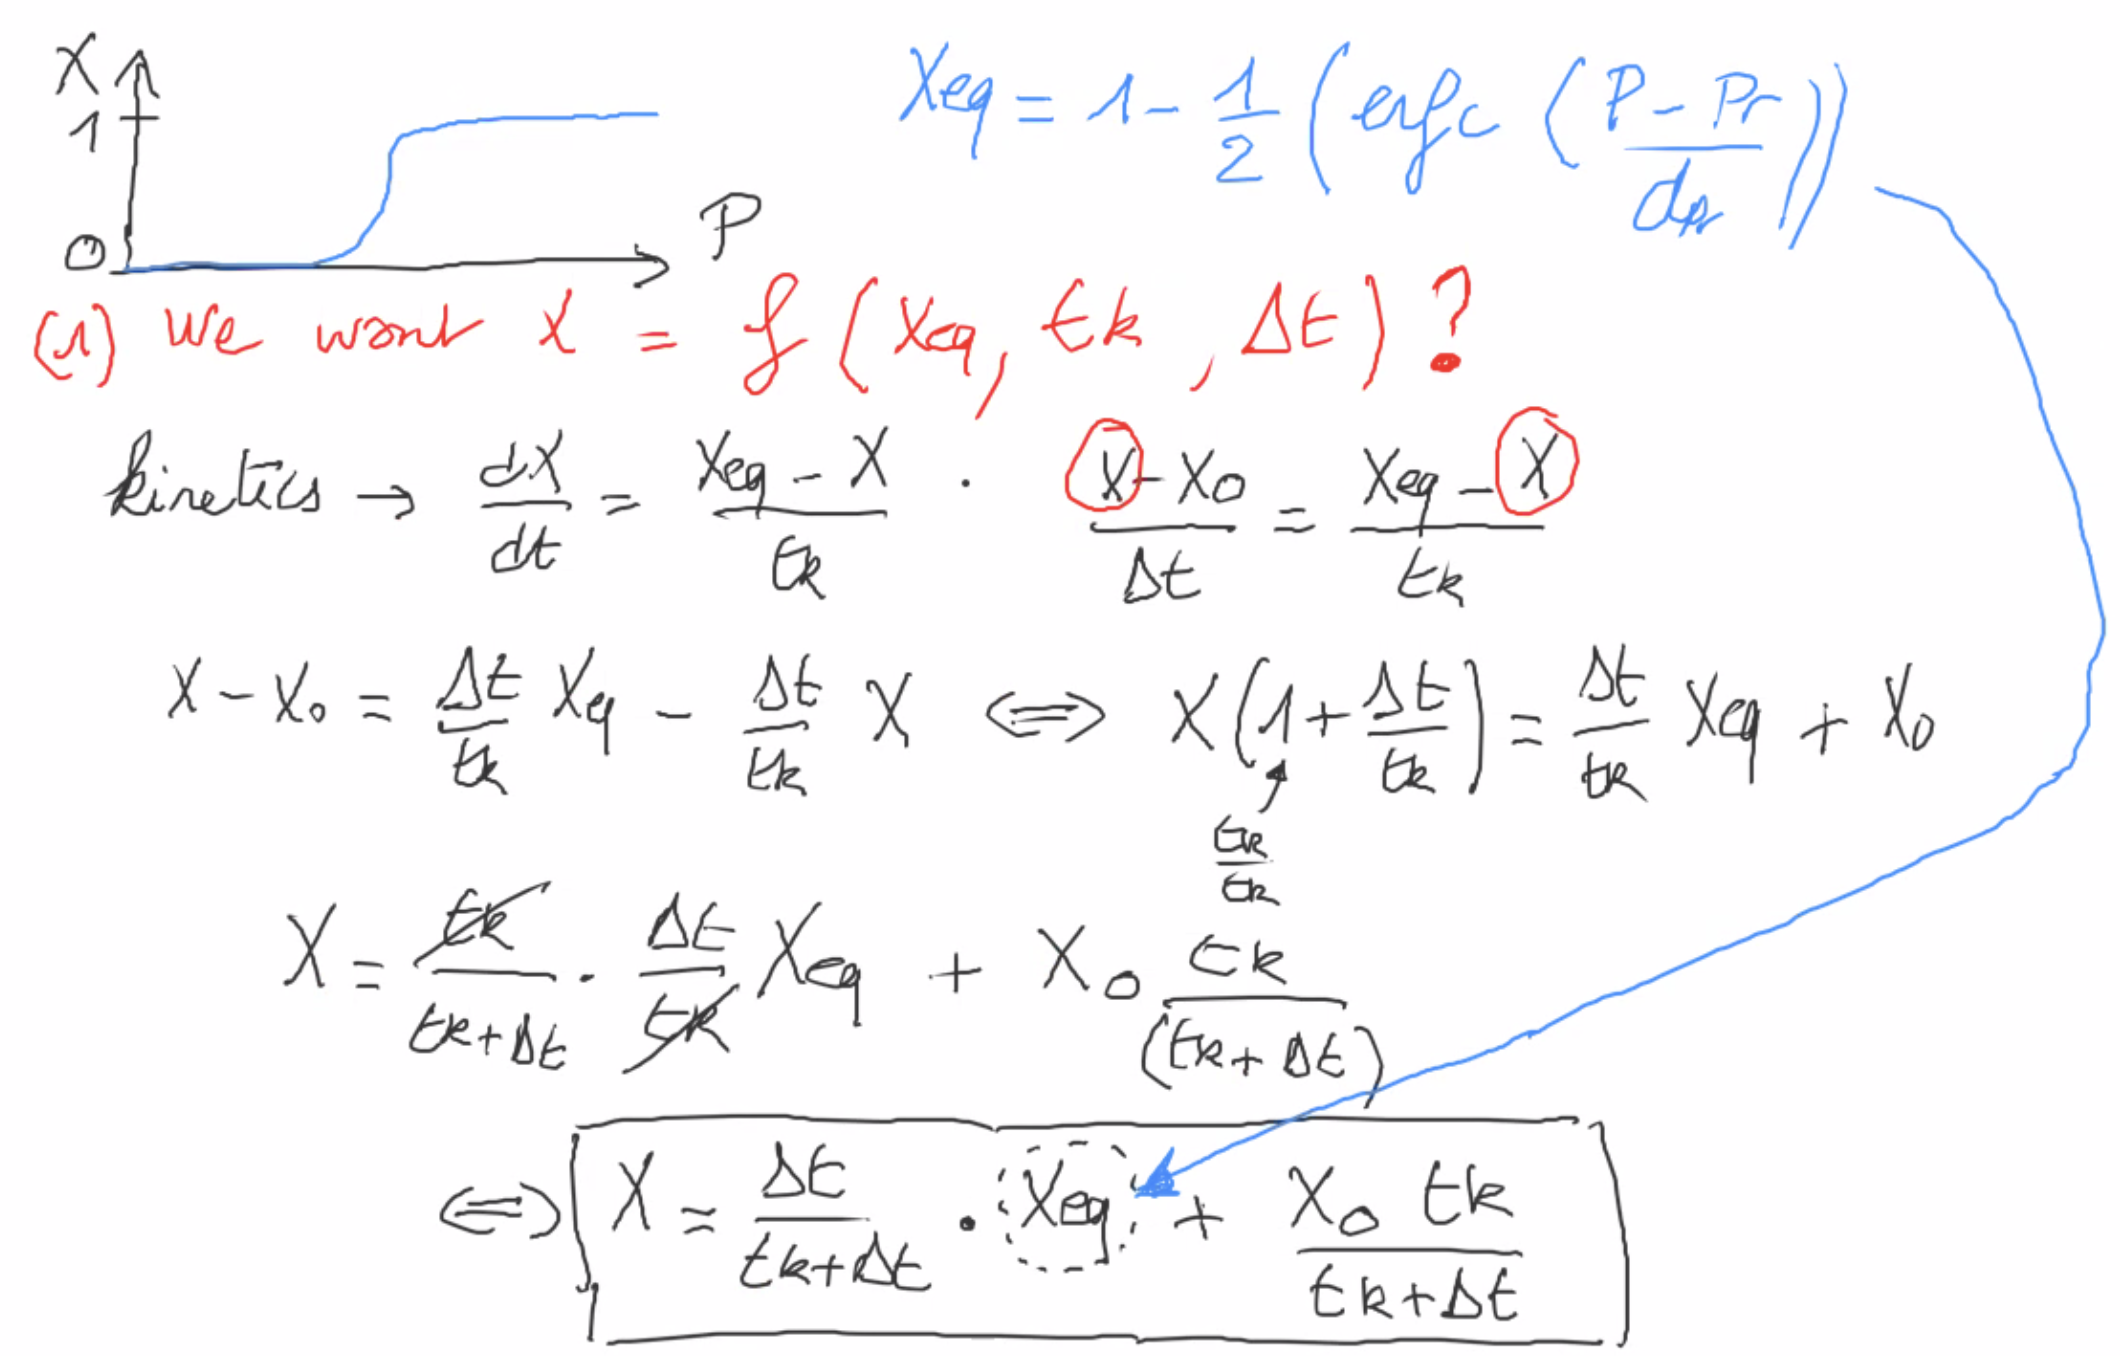 X
1
0
P
Xeq = 1 - 1/2 (erfc ((P - Pr)/dp))
(1) We want X = f (Xeq, tk, Δt) ?
kinetics → dX/dt = (Xeq - X)/tk . (X - X0)/Δt = (Xeq - X)/tk
X - X0 = Δt/tk Xeq - Δt/tk X ⇔ X(1 + Δt/tk) = Δt/tk Xeq + X0
tk/tk
X = tk/(tk+Δt) · Δt/tk Xeq + X0 tk/(tk+Δt)
⇔ X = Δt/(tk+Δt) · Xeq + X0 tk/(tk+Δt)